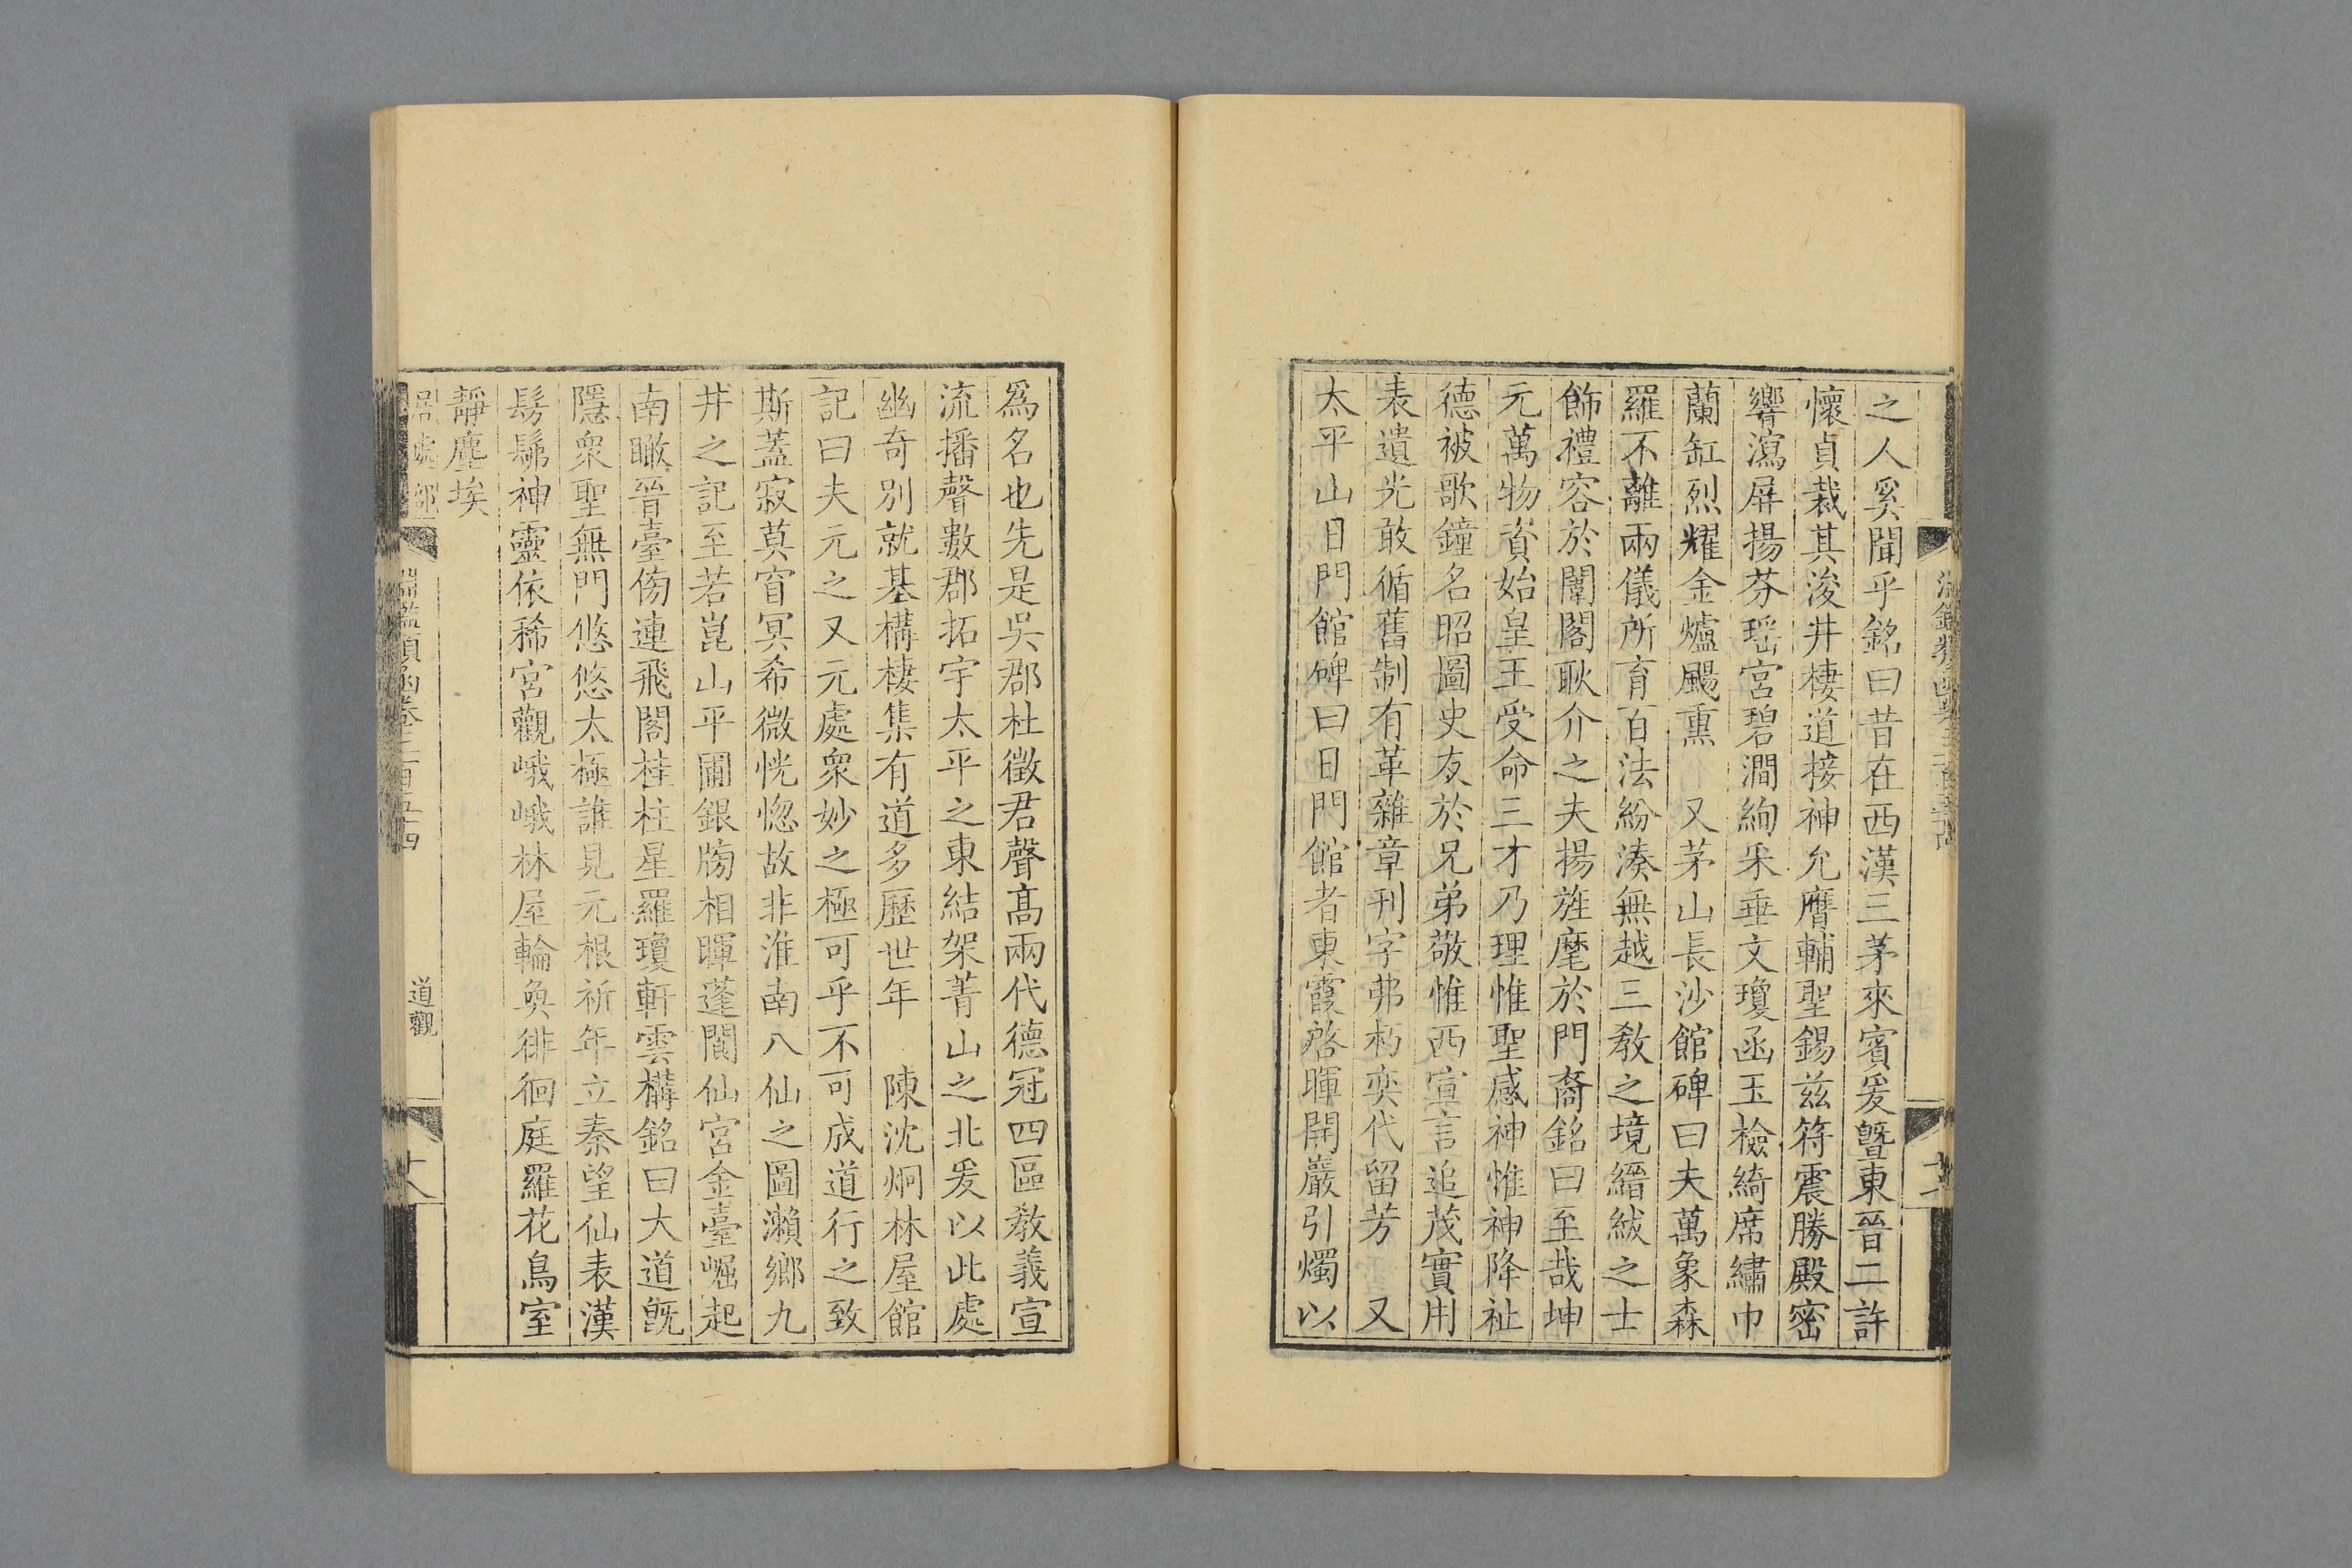 之人奚聞乎銘曰昔在西漢三茅來賓爰曁東晉二許
懷貞栽其浚井棲道接神允膺輔聖錫茲符震勝殿密
響瀉屏揚芬瑶宮碧澗絢采垂文瓊函玉檢綺席繡巾
蘭缸烈耀金爐颺熏　又茅山長沙館碑曰夫萬象森
羅不離兩儀所育百法紛湊無越三教之境縉紱之士
飾禮容於闈閣耿介之夫揚旌麾於門裔銘曰至哉坤
元萬物資始皇王受命三才乃理惟聖感神惟神降祉
德被歌鐘名昭圖史友於兄弟敬惟西宣言追茂實用
表遺光敢循舊制有革雜章刊字弗朽奕代留芳　又
太平山日門館碑曰日門館者東霞啓暉開巖引燭以
爲名也先是吳郡杜徵君聲高兩代德冠四區敎義宣
流播聲數郡拓宇太平之東結架菁山之北爰以此處
幽奇別就基構棲集有道多歷世年　陳沈炯林屋館
記曰夫元之又元處衆妙之極可乎不可成道行之致
斯蓋寂莫窅冥希微恍惚故非淮南八仙之圖瀨鄉九
井之記至若崑山平圃銀牓相暉蓬閬仙宮金臺崛起
南瞰晉臺傍連飛閣桂柱星羅瓊軒雲構銘曰大道旣
隱衆聖無門悠悠太極誰見元根祈年立秦望仙表漢
髣髴神靈依稀宮觀峨峨林屋輪奐徘徊庭羅花鳥室
靜塵埃
居處部
淵鑑類函卷三百五十四
道觀
十八